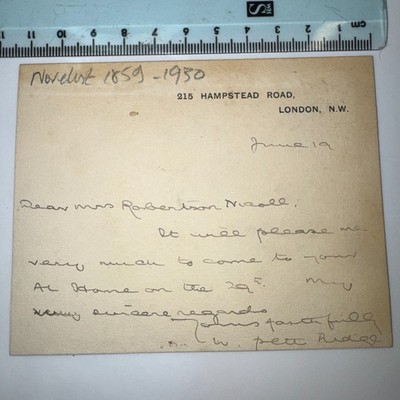 SVS
5
1cm 2 3 4 5 6 7 8 9 10 11
Novelist 1859-1930
215 HAMPSTEAD ROAD,
LONDON, N.W.
June 19
Dear Mrs Robertson Nicoll.
It will please me
very much to come to your
At Home on the 29th. My
very sincere regards
Yours faithfully
W. Pett Ridge